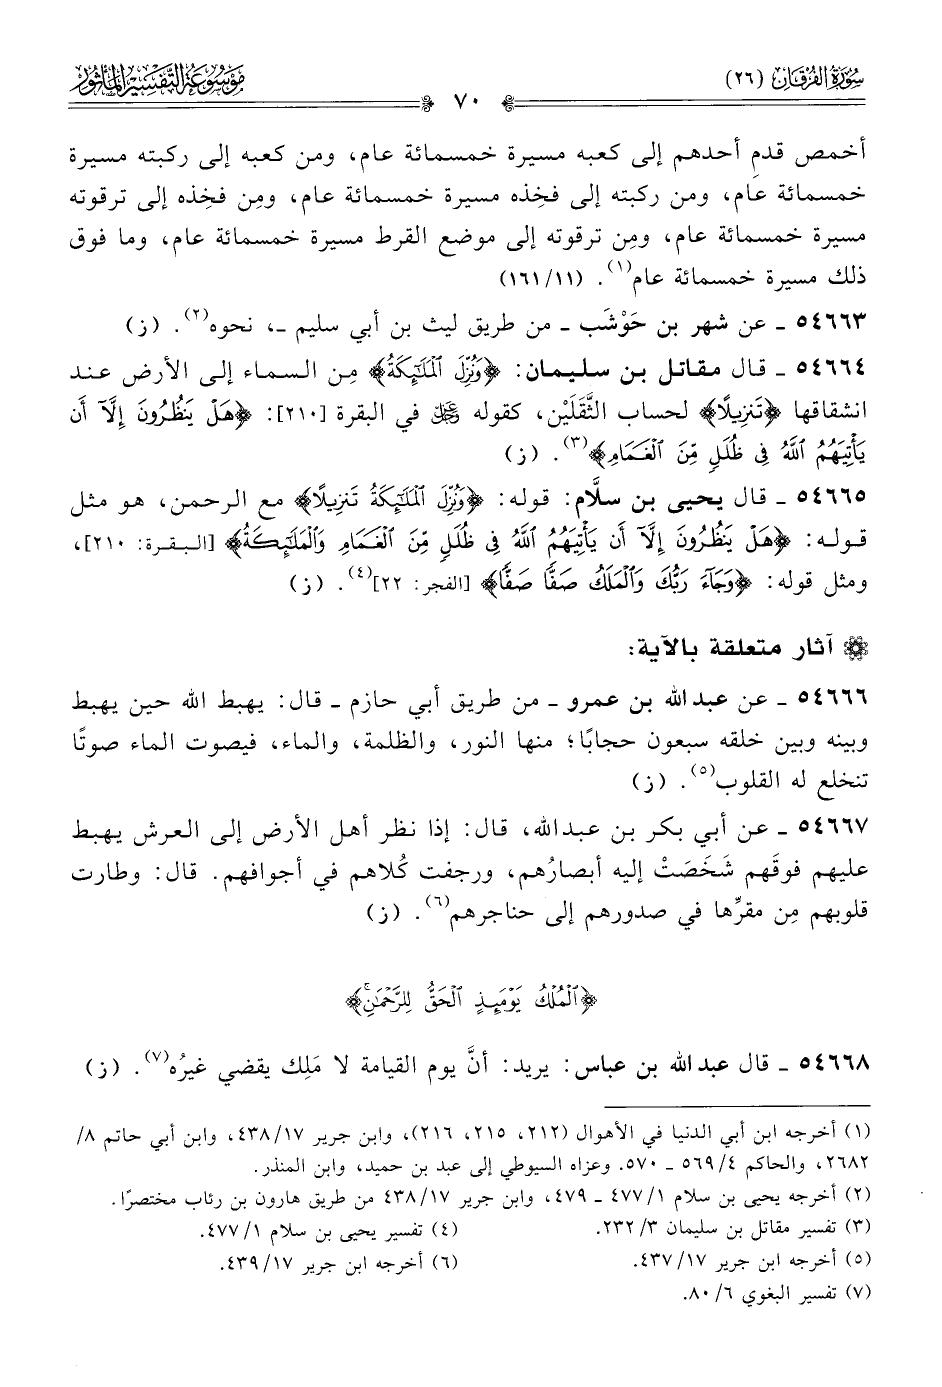 سُورَةُ الفُرْقَانِ (٢٦)
٧٠
مَوْسُوعَةُ التَّفْسِيرِ المَأْثُورِ
أخمص قدم أحدهم إلى كعبه مسيرة خمسمائة عام، ومن كعبه إلى ركبته مسيرة
خمسمائة عام، ومن ركبته إلى فخِذه مسيرة خمسمائة عام، ومِن فخِذه إلى ترقوته
مسيرة خمسمائة عام، ومِن ترقوته إلى موضع القرط مسيرة خمسمائة عام، وما فوق
ذلك مسيرة خمسمائة عام(١). (١٦١/١١)
٥٤٦٦٣ ـ عن شهر بن حَوْشَب ـ من طريق ليث بن أبي سليم ـ، نحوه(٢). (ز)
٥٤٦٦٤ ـ قال مقاتل بن سليمان: ﴿وَنُزِّلَ ٱلْمَلَـٰٓئِكَةُ﴾ مِن السماء إلى الأرض عند
انشقاقها ﴿تَنزِيلًا﴾ لحساب الثَّقَلَيْن، كقوله ﷿ في البقرة [٢١٠]: ﴿هَلْ يَنظُرُونَ إِلَّآ أَن
يَأْتِيَهُمُ ٱللَّهُ فِى ظُلَلٍ مِّنَ ٱلْغَمَامِ﴾(٣). (ز)
٥٤٦٦٥ ـ قال يحيى بن سلَّام: قوله: ﴿وَنُزِّلَ ٱلْمَلَـٰٓئِكَةُ تَنزِيلًا﴾ مع الرحمن، هو مثل
قوله: ﴿هَلْ يَنظُرُونَ إِلَّآ أَن يَأْتِيَهُمُ ٱللَّهُ فِى ظُلَلٍ مِّنَ ٱلْغَمَامِ وَٱلْمَلَـٰٓئِكَةُ﴾ [البقرة: ٢١٠]،
ومثل قوله: ﴿وَجَآءَ رَبُّكَ وَٱلْمَلَكُ صَفًّا صَفًّا﴾ [الفجر: ٢٢](٤). (ز)
آثار متعلقة بالآية:
٥٤٦٦٦ ـ عن عبد الله بن عمرو ـ من طريق أبي حازم ـ قال: يهبط الله حين يهبط
وبينه وبين خلقه سبعون حجابًا؛ منها النور، والظلمة، والماء، فيصوت الماء صوتًا
تنخلع له القلوب(٥). (ز)
٥٤٦٦٧ ـ عن أبي بكر بن عبد الله، قال: إذا نظر أهل الأرض إلى العرش يهبط
عليهم فوقَهم شَخَصَتْ إليه أبصارُهم، ورجفت كُلاهم في أجوافهم. قال: وطارت
قلوبهم مِن مقرِّها في صدورهم إلى حناجرهم(٦). (ز)
﴿ٱلْمُلْكُ يَوْمَئِذٍ ٱلْحَقُّ لِلرَّحْمَـٰنِ ۚ﴾
٥٤٦٦٨ ـ قال عبد الله بن عباس: يريد: أنَّ يوم القيامة لا مَلِك يقضي غيرُه(٧). (ز)
(١) أخرجه ابن أبي الدنيا في الأهوال (٢١٢، ٢١٥، ٢١٦)، وابن جرير ٤٣٨/١٧، وابن أبي حاتم ٨/
٢٦٨٢، والحاكم ٥٦٩/٤ ـ ٥٧٠. وعزاه السيوطي إلى عبد بن حميد، وابن المنذر.
(٢) أخرجه يحيى بن سلام ٤٧٧/١ ـ ٤٧٩، وابن جرير ٤٣٨/١٧ من طريق هارون بن رئاب مختصرًا.
(٣) تفسير مقاتل بن سليمان ٢٣٢/٣. (٤) تفسير يحيى بن سلام ٤٧٧/١.
(٥) أخرجه ابن جرير ٤٣٧/١٧. (٦) أخرجه ابن جرير ٤٣٩/١٧.
(٧) تفسير البغوي ٨٠/٦.